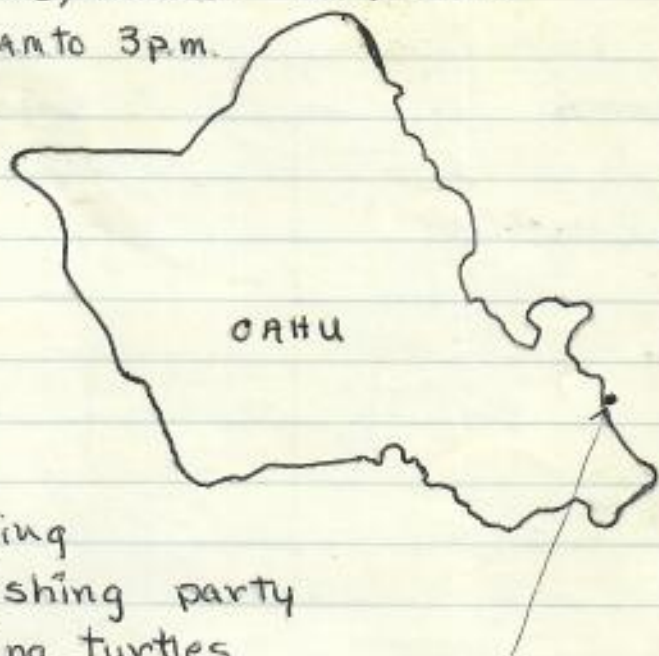 AM to 3 p.m.
OAHU
ing
shing party
ng turtles